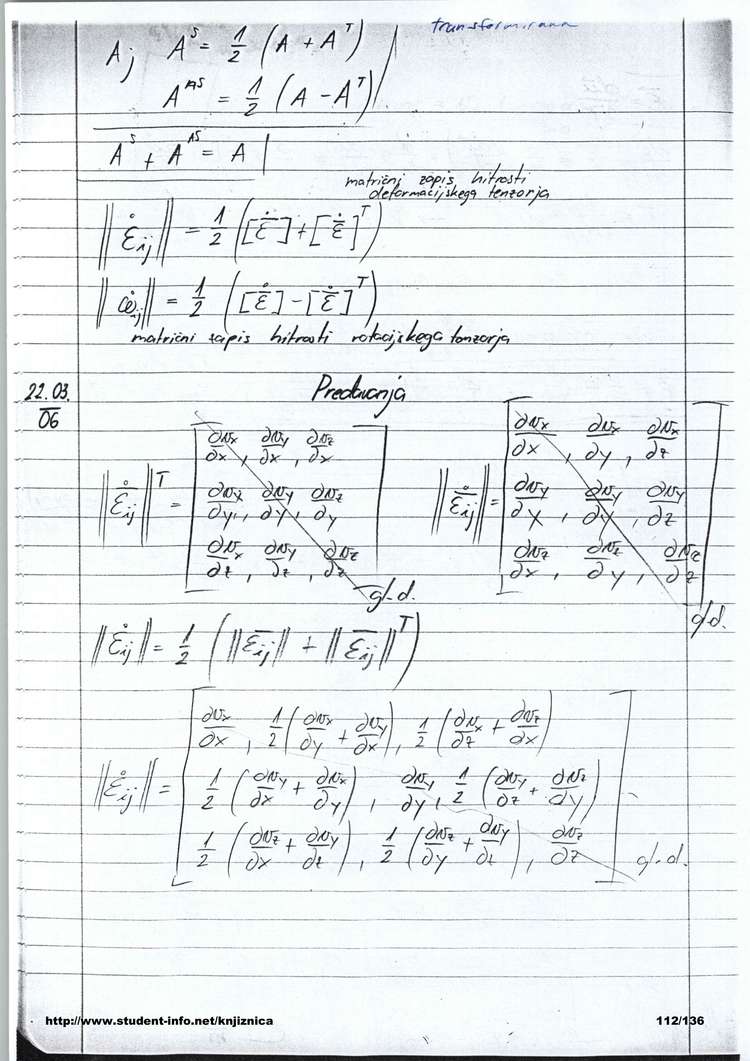 transformirana
A; A^S = 1/2 (A + A^T)
A^AS = 1/2 (A - A^T)
A^S + A^AS = A
matrični zapis hitrosti
deformacijskega tenzorja
||ε̇ij|| = 1/2 ([ε̇] + [ε̇]^T)
||ω̇ij|| = 1/2 ([ε̇] - [ε̇]^T)
matrični zapis hitrosti rotacijskega tenzorja
22.03. Predavanja
06
||ε̇ij||^T = [∂vx/∂x, ∂vy/∂x, ∂vz/∂x
∂vx/∂y, ∂vy/∂y, ∂vz/∂y
∂vx/∂z, ∂vy/∂z, ∂vz/∂z] gl.d.
||ε̇ij|| = [∂vx/∂x, ∂vx/∂y, ∂vx/∂z
∂vy/∂x, ∂vy/∂y, ∂vy/∂z
∂vz/∂x, ∂vz/∂y, ∂vz/∂z] gl.d.
||ε̇ij|| = 1/2 (||εij|| + ||εij||^T)
||ε̇ij|| = [∂vx/∂x, 1/2 (∂vx/∂y + ∂vy/∂x), 1/2 (∂vx/∂z + ∂vz/∂x)
1/2 (∂vy/∂x + ∂vx/∂y), ∂vy/∂y, 1/2 (∂vy/∂z + ∂vz/∂y)
1/2 (∂vz/∂x + ∂vy/∂z), 1/2 (∂vz/∂y + ∂vy/∂z), ∂vz/∂z] gl.d.
http://www.student-info.net/knjiznica 112/136